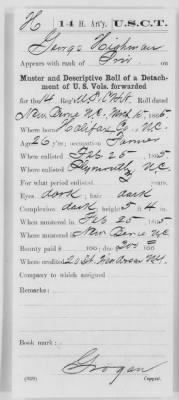 H | 14 H. Art'y. | U.S.C.T.
George Hickman
Appears with rank of Priv on
Muster and Descriptive Roll of a Detach-
ment of U. S. Vols. forwarded
for the 14 Reg't U.S.C.H.A. Roll dated
New Berne N.C. Mch 15, 1865
Where born Halifax Co N.C.
Age 26 y'rs; occupation Farmer
When enlisted Feb 25, 1865
Where enlisted Plymouth N.C.
For what period enlisted years.
Eyes dark; hair dark
Complexion dark; height 5 ft. 4 in.
When mustered in Feb 25, 1865
Where mustered in New Berne N.C.
Bounty paid $ 100; due $ 300 100
Where credited
Company to which assigned
Remarks:
Book mark:
Grogan
(339) Copyist.